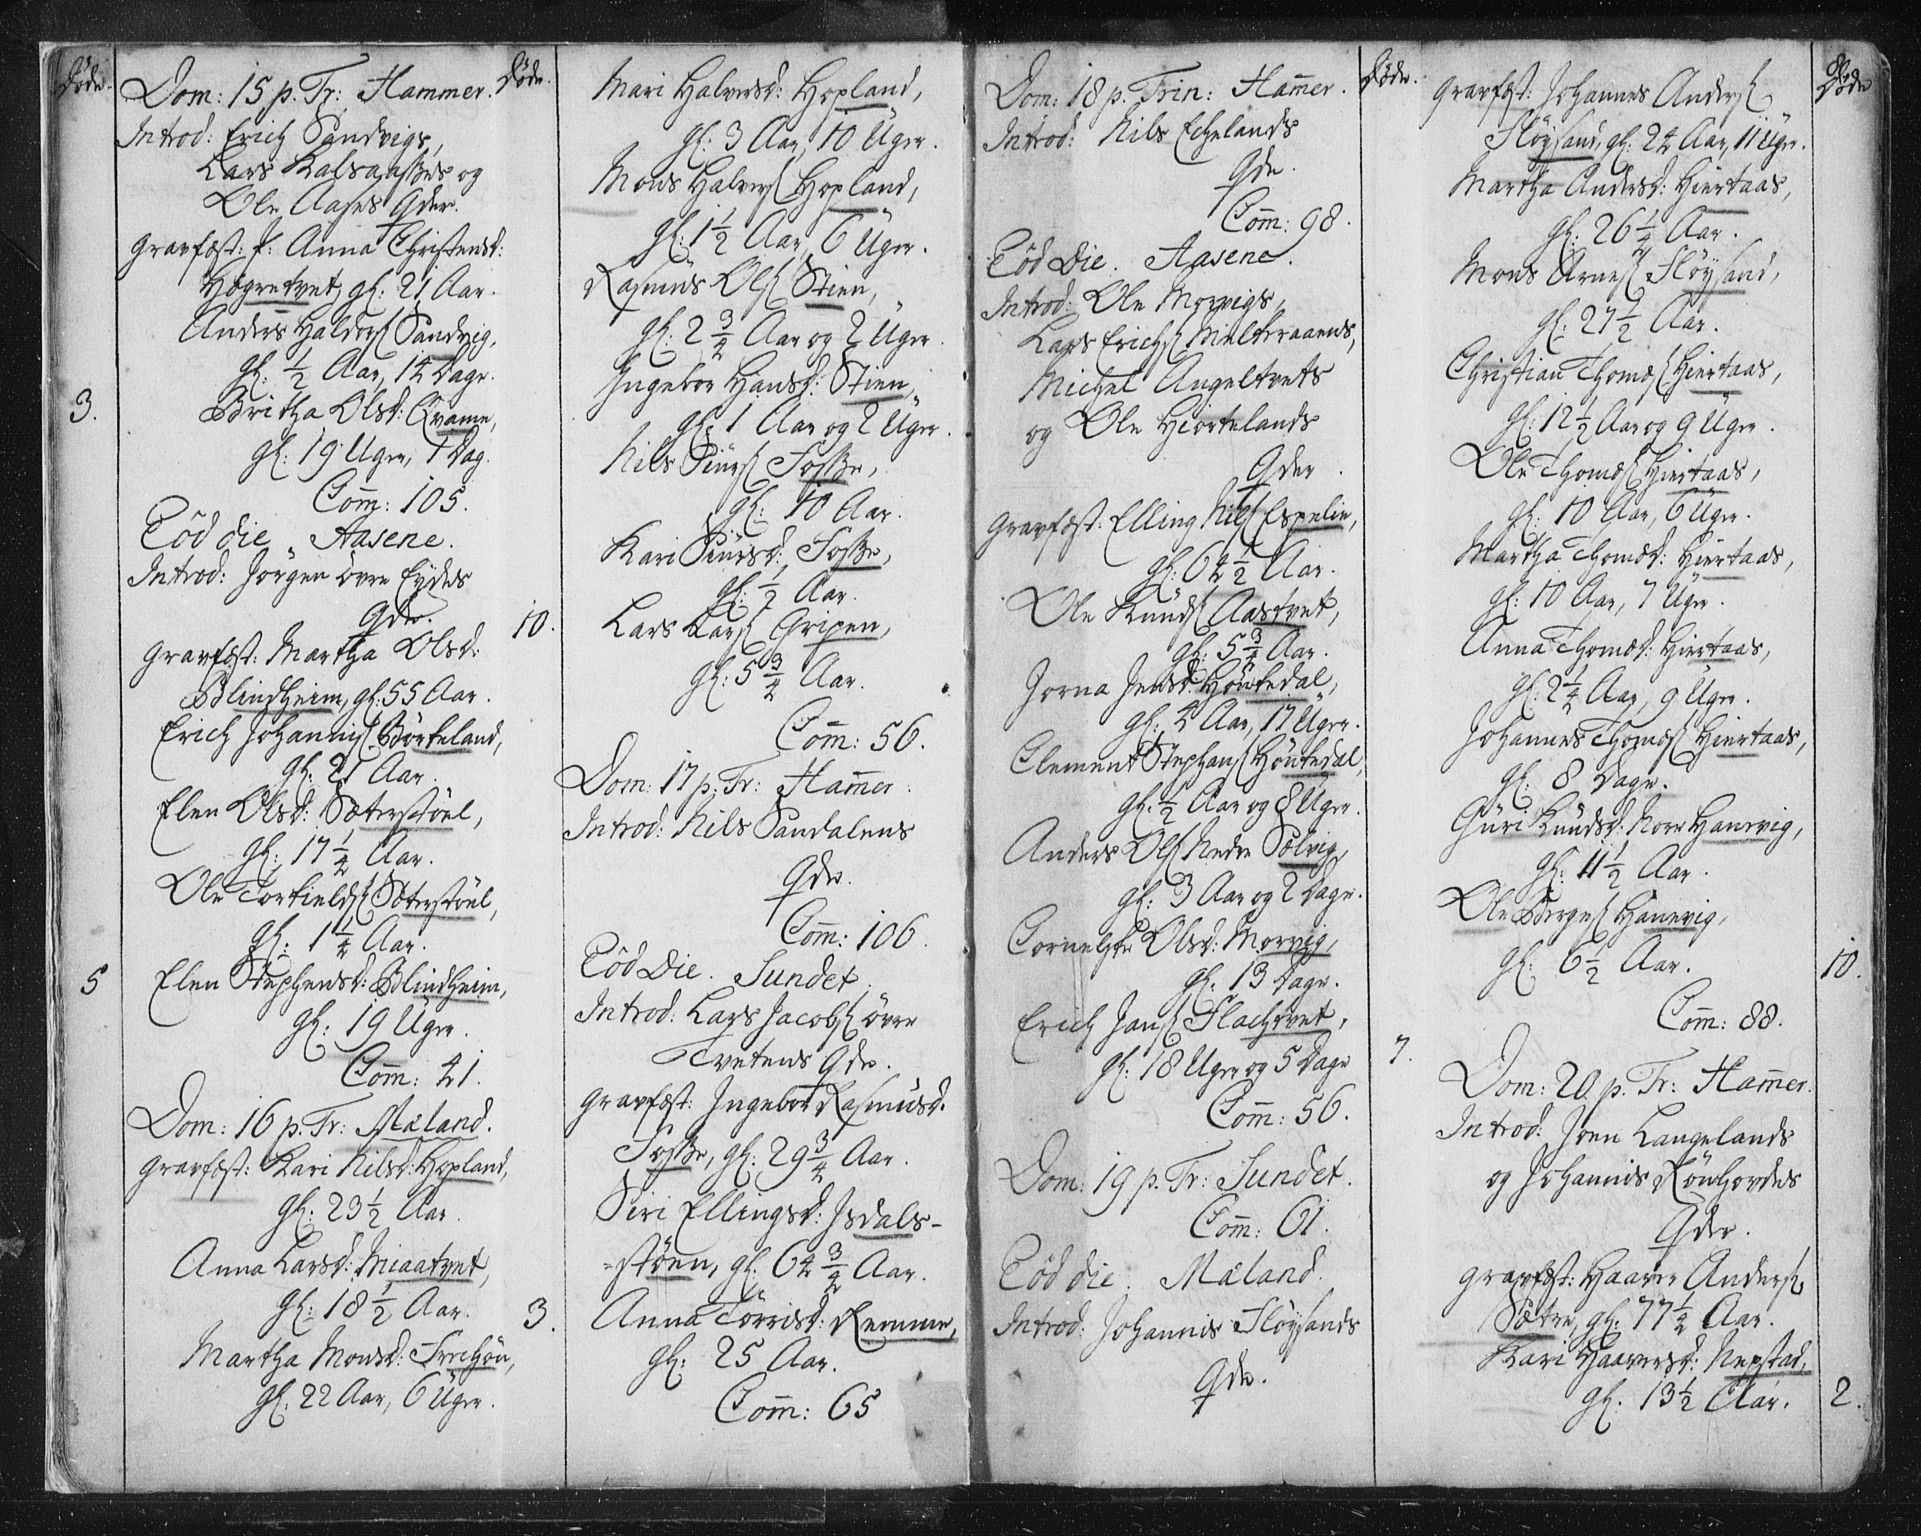 Døde.
Dom: 15 p. Tr: Hammer.
Introd: Erich Sandvigs,
Lars Kalsaasses og
Ole Aases Qder.
Gravfæst: f: Anna Christensd:
Høgretvet, gl: 21 Aar.
Anders Haldors Sandvig,
gl: ½ Aar, 14 Dage.
3.
Britha Olsd: Qvame,
gl: 19 Uger, 1 Dag.
Com̅: 105.
Eod die Aasene.
Introd: Jörgen övre Eydes
Qde.
Gravfæst: Martha Olsd:
Blindheim, gl: 55 Aar.
Erich Johannis Börkeland,
gl: 21 Aar.
Elen Olsd: Sæterstöel,
gl: 17 ¼ Aar.
Ole Torkields Sæterstöel,
gl: 1 ¼ Aar.
5
Elen Stephensd: Blindheim,
gl: 19 Uger.
Com̅: 41.
Dom: 16 p. Tr: Mæland.
Gravfæst: Kari Nilsd: Hopland,
gl: 23 ½ Aar.
Anna Larsd: Miaatvet,
gl: 18 ½ Aar.
Martha Monsd: Frechöu,
gl: 22 Aar, 6 Uger.
Døde.
Mari Halversd: Hopland,
gl: 3 Aar, 10 Uger.
Mons Halvers Hopland,
gl: 1 ½ Aar, 6 Uger.
Rasmus Ols Stien,
gl: 2 ¾ Aar og 2 Uger.
Ingebor Hansd: Stien,
gl: 1 Aar og 2 Uger.
Nils Siurs Fosse,
gl: 10 Aar.
Kari Siursd: Fosse,
gl: ½ Aar.
10.
Lars Lars Gripen,
gl: 5 ¾ Aar.
Com̅: 56.
Dom: 17 p. Tr: Ham̅er.
Introd: Nils Sandalens
Qde.
Com̅: 106.
Eod Die. Sundet.
Introd: Lars Jacobs övre
Tvetens Qde.
Gravfæst: Ingebor Rasmusd.
Fosse, gl: 29 ¾ Aar.
Siri Ellingsd: Isdals-
=stöen, gl: 64 ¾ Aar.
3.
Anna Törrisd: Remme,
gl: 25 Aar.
Com̅: 65
Dom: 18 p. Trin: Ham̅er.
Introd: Nils Echelands
Qde.
Com̅: 98.
Eod Die. Aasene.
Introd: Ole Morvigs,
Lars Erichs Mulderaaens,
Michel Angeltvets
og Ole Hiortelands
Qder.
Gravfæst: Elling Nils Espelie,
gl: 64 ½ Aar.
Ole Knuds Aastvet,
gl: 5 ¾ Aar.
Jorna Jensd: Höutedal,
gl: 4 Aar, 17 Uger.
Clement Stephans Höutedal,
gl: ½ Aar og 8 Uger.
Anders Ols Nedre Sælvig,
gl: 3 Aar og 2 Dage.
Cornelse Olsd: Morvig,
gl: 13 Dage.
Erich Jans Flachtvet,
gl: 18 Uger og 5 Dage
7.
Com̅: 56.
Dom: 19 p. Tr: Sundet.
Com̅: 61.
Eod die. Mæland.
Introd: Johannis Flöysands
Qde.
Døde.
Gravfæst: Johannes Anders
Flöysand, gl: 24 Aar, 11 Uger.
Martha Andersd: Hiertaas,
gl: 26 ¼ Aar.
Mons Arnes Flöysand,
gl: 27 ½ Aar.
Christian Thomæs Hiertaas,
gl: 12 ½ Aar og 9 Uger.
Ole Thomæs Hiertaas,
gl: 10 Aar, 6 Uger.
Martha Thomæd: Hiertaas,
gl: 10 Aar, 7 Uger.
Anna Thomæd: Hiertaas,
gl: 2 ¼ Aar, 9 Uger.
Johannes Thomæs Hiertaas,
gl: 8 Dage.
Guri Knudsd: Nore Hanevig,
gl: 11 ½ Aar.
Ole Börges Hanevig,
gl: 6 ½ Aar.
10.
Com̅: 88.
Dom: 20. p. Tr: Ham̅er.
Introd: Joen Langelands
og Johannis Rönhordes
Qder.
Gravfæst: Haaver Anders
Sætre, gl: 77 ¼ Aar.
Kari Haaversd: Nepstad,
gl: 13 ½ Aar.
2.
Døde